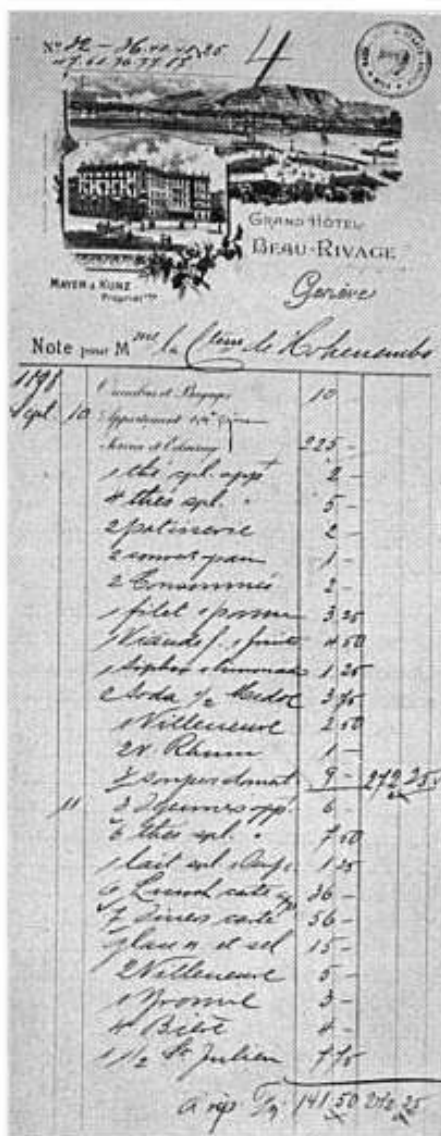 Nº 82 - 36.40.45.25
47.61.76.77.85
4
GRAND HÔTEL
BEAU-RIVAGE
MAYER & KUNZ
Propriétres
Genève
Note pour Mme la Ctesse de Hohenembs
1898 Omnibus et Bagages 10 -
Sept. 10 Appartement
Service et éclairage 225 -
1 thé cpl. appt 2 -
4 thés cpl. " 5 -
2 patisserie 2 -
2 couvert pain 1 -
2 Consommés 2 -
1 filet pomme 3 25
1 Viande f. 1 fruits 4 50
1 Syphon 1 limonade 1 25
2 Soda 1/2 Medoc 3 75
1 Villeneuve 2 50
2 v. Rhum 1 -
soupers domest. 9 - 272.25
11 3 Djeuners app. 6 -
6 thés cpl. " 7 50
1 lait cpl. 1 25
6 Lunch carte 36 -
7 Diners carte 56 -
glace n et sel 15 -
2 Villeneuve 5 -
1 Yvorne 3 -
4 Bière 4 -
1 1/2 St Julien 7 75
à rep. 141.50 272.25